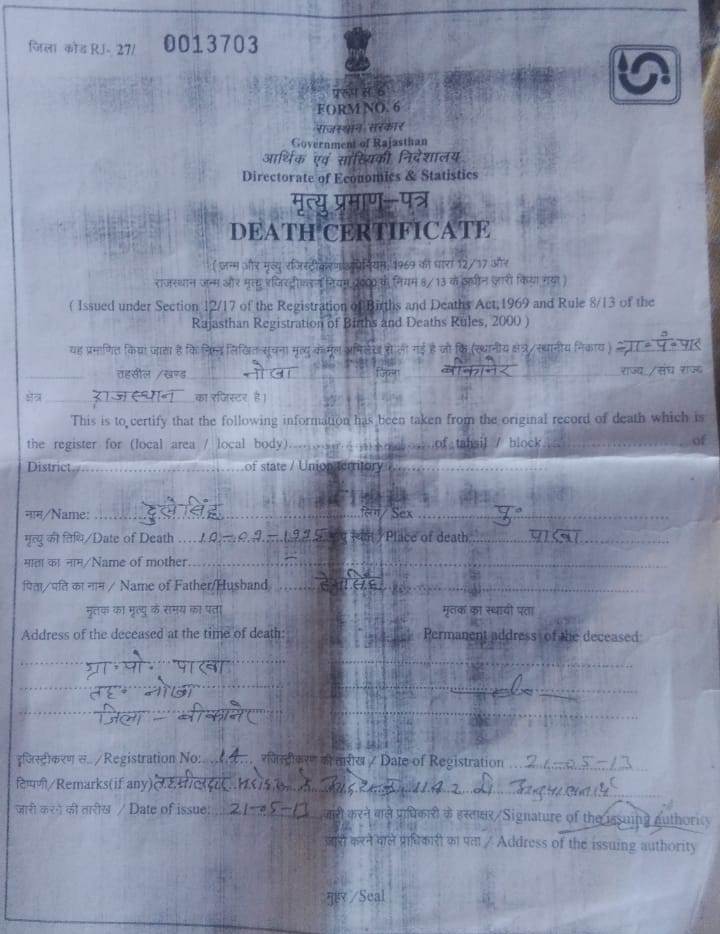 जिला कोड RJ- 27/ 0013703
प्ररूप सं. 6
FORM NO. 6
राजस्थान सरकार
Government of Rajasthan
आर्थिक एवं सांख्यिकी निदेशालय
Directorate of Economics & Statistics
मृत्यु प्रमाण–पत्र
DEATH CERTIFICATE
(जन्म और मृत्यु रजिस्ट्रीकरण अधिनियम, 1969 की धारा 12/17 और
राजस्थान जन्म और मृत्यु रजिस्ट्रीकरण नियम, 2000 के नियम 8/13 के अधीन जारी किया गया)
( Issued under Section 12/17 of the Registration of Births and Deaths Act,1969 and Rule 8/13 of the
Rajasthan Registration of Births and Deaths Rules, 2000 )
यह प्रमाणित किया जाता है कि निम्न लिखित सूचना मृत्यु के मूल अभिलेख से ली गई है जो कि (स्थानीय क्षेत्र/स्थानीय निकाय) ग्रा॰ पं॰
तहसील /खण्ड नोखा जिला बीकानेर राज्य /संघ राज्य
क्षेत्र राजस्थान का रजिस्टर है।
This is to certify that the following information has been taken from the original record of death which is
the register for (local area / local body) of tahsil / block of
District of state / Union territory
नाम/Name: सिंह लिंग/Sex पु॰
मृत्यु की तिथि/Date of Death 10-02-1995 मृत्यु स्थान/Place of death: पारवा
माता का नाम/Name of mother -
पिता/पति का नाम / Name of Father/Husband सिंह
मृतक का मृत्यु के समय का पता मृतक का स्थायी पता
Address of the deceased at the time of death: Permanent address of the deceased:
ग्रा॰ पो॰ पारवा
तह॰ नोखा
जिला - बीकानेर
रजिस्ट्रीकरण सं.. /Registration No: 14 रजिस्ट्रीकरण की तारीख / Date of Registration 21-05-13
टिप्पणी/Remarks(if any) तहसीलदार के
जारी करने की तारीख / Date of issue: 21-05-13 जारी करने वाले प्राधिकारी के हस्ताक्षर/Signature of the issuing authority
जारी करने वाले प्राधिकारी का पता / Address of the issuing authority
मुहर /Seal